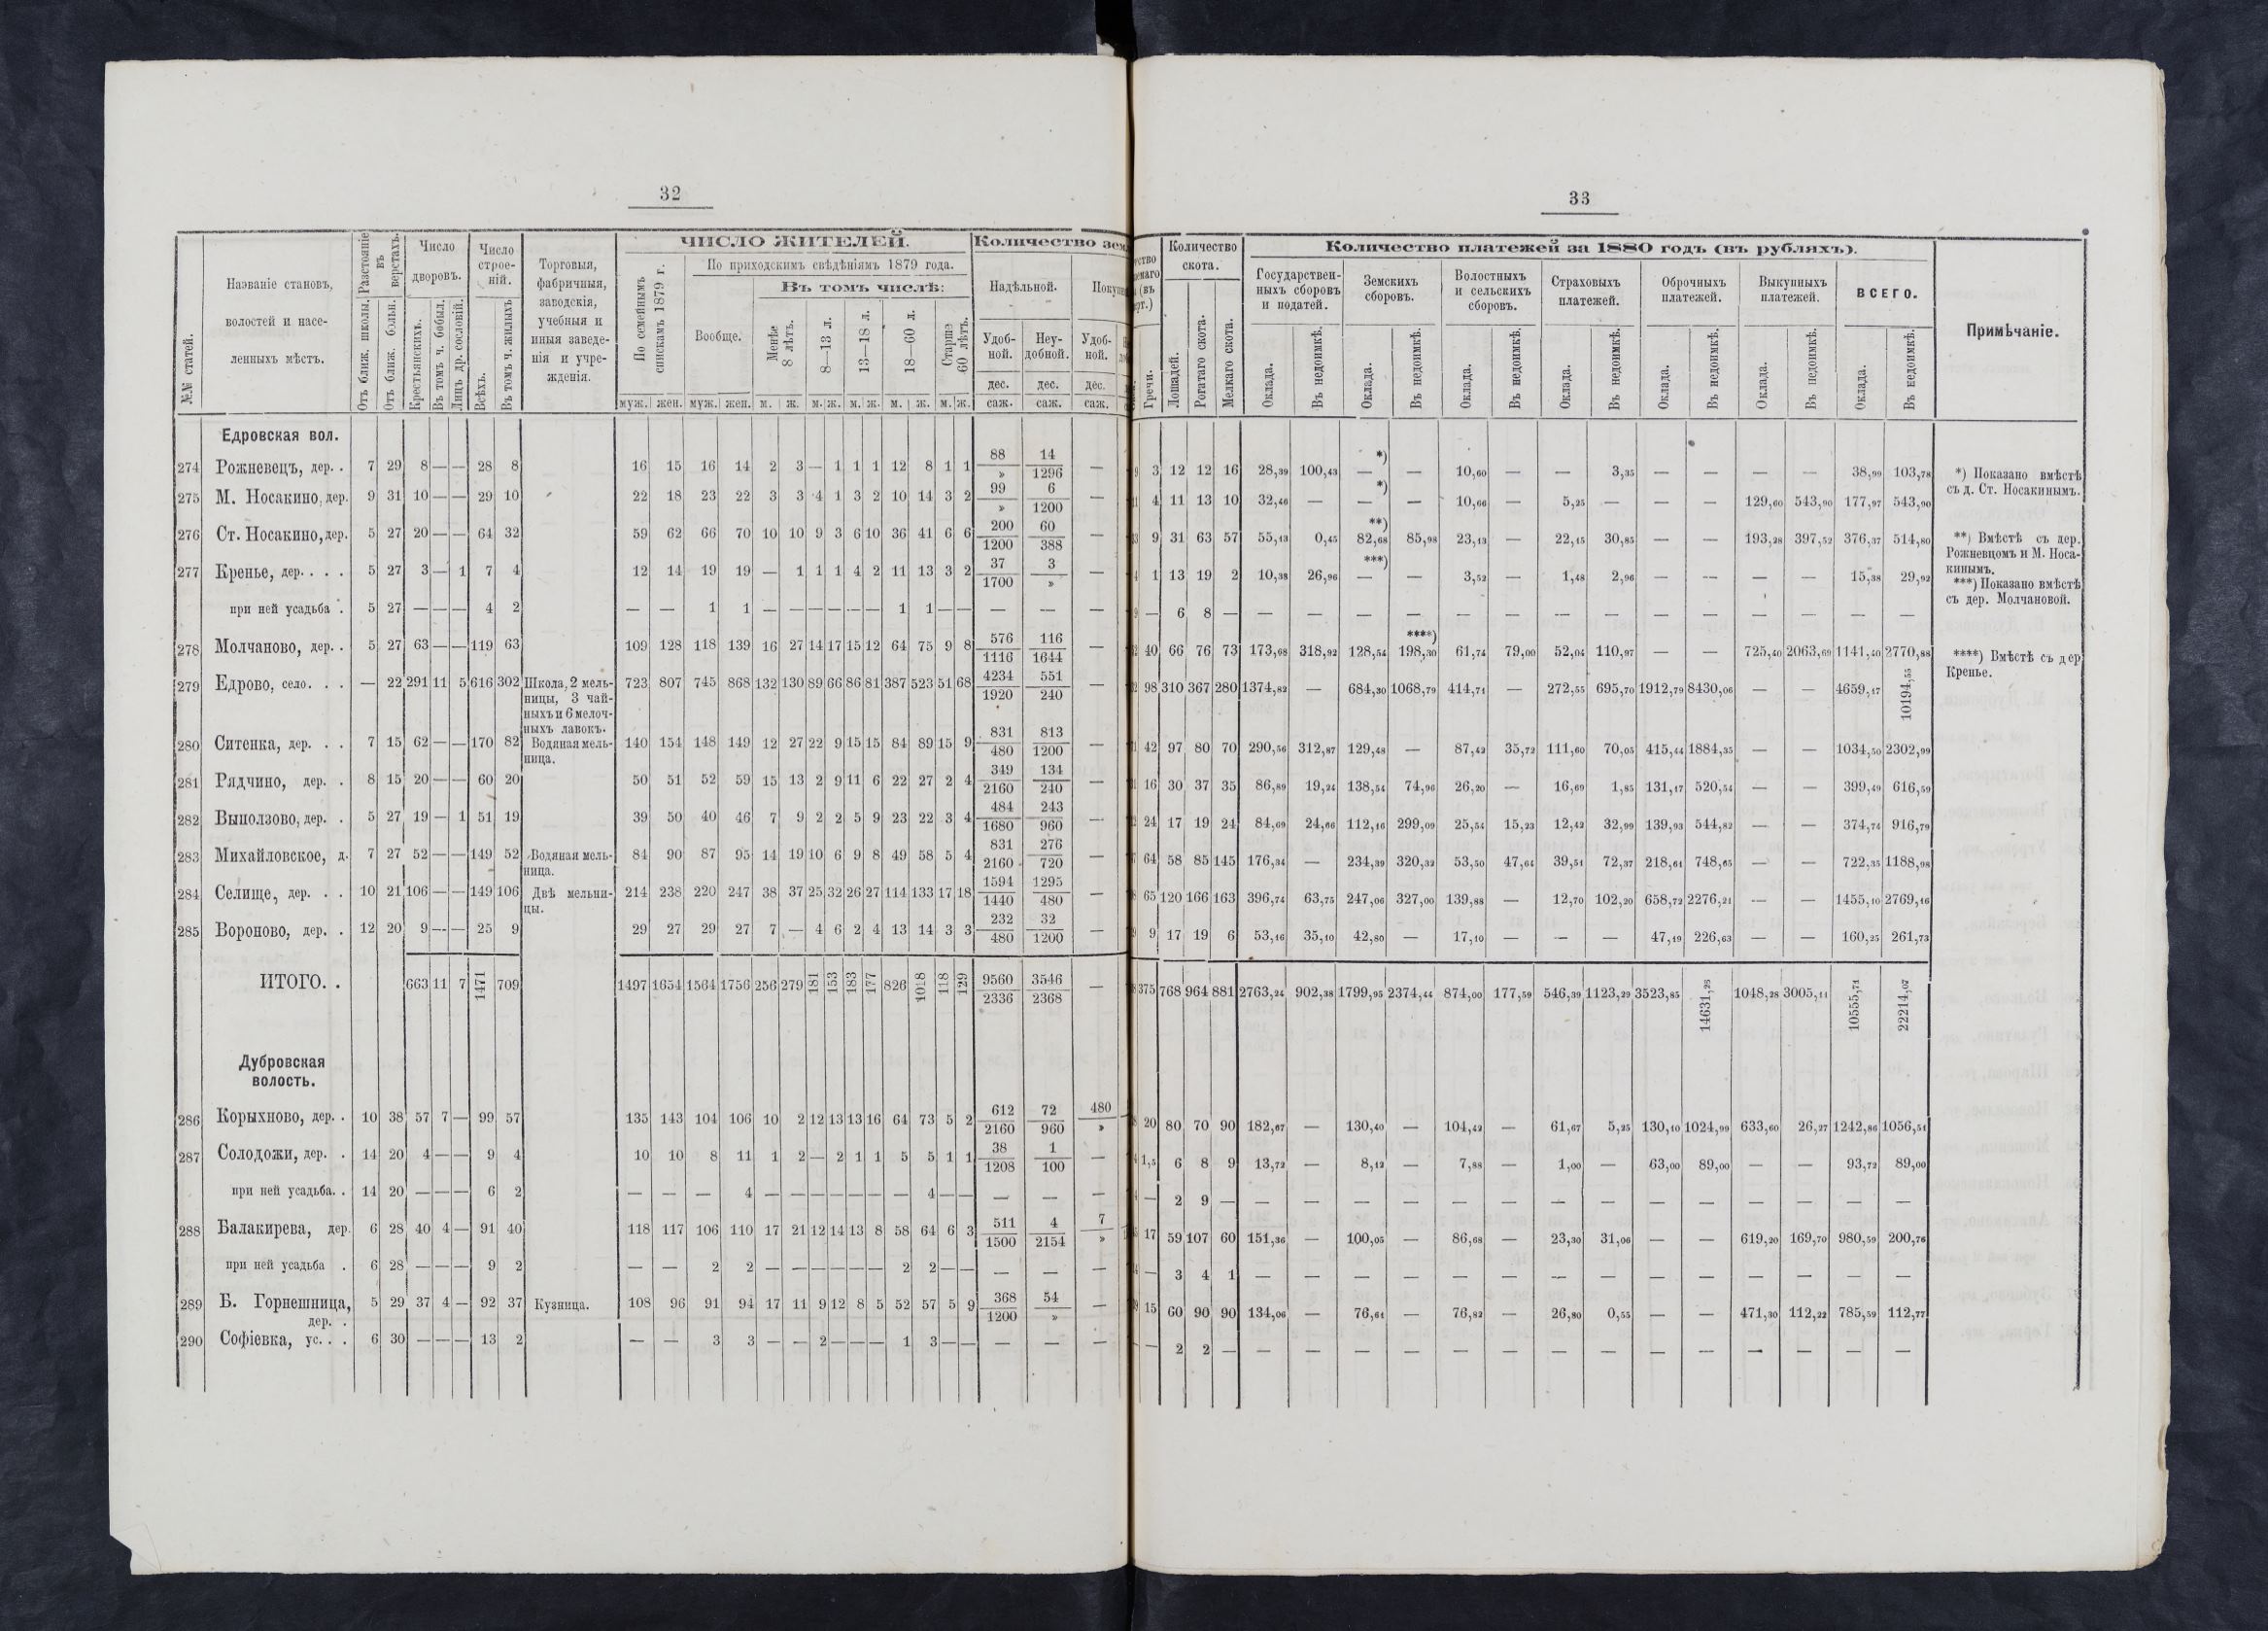 32
№№ статей.
Названіе становъ, волостей и населенныхъ мѣстъ.
Разстояніе въ верстахъ.
Отъ ближ. школы.
Отъ ближ. больн.
Число дворовъ.
Крестьянскихъ.
Въ томъ ч. бобыл.
Лицъ др. сословій.
Число строеній.
Всѣхъ.
Въ томъ ч. жилыхъ
Торговыя, фабричныя, заводскія, учебныя и иныя заведенія и учрежденія.
ЧИСЛО ЖИТЕЛЕЙ.
По семейнымъ спискамъ 1879 г.
По приходскимъ свѣдѣніямъ 1879 года.
Вообще.
Въ томъ числѣ:
Менѣе 8 лѣтъ.
8—13 л.
13—18 л.
18—60 л.
Старше 60 лѣтъ.
муж. жен. муж. жен. м. ж. м. ж. м. ж. м. ж. м. ж.
Количество зем
Надѣльной.
Удобной.
Неудобной.
Удобной.
дес. дес. дес.
саж. саж. саж.
Едровская вол.
274 Рожневецъ, дер. . 7 29 8 — — 28 8 16 15 16 14 2 3 — 1 1 1 12 8 1 1 88/» 14/1296 —
275 М. Носакино, дер. 9 31 10 — — 29 10 22 18 23 22 3 3 4 1 3 2 10 14 3 2 99/» 6/1200 —
276 Ст. Носакино, дер. 5 27 20 — — 64 32 59 62 66 70 10 10 9 3 6 10 36 41 6 6 200/1200 60/388 —
277 Кренье, дер. . . . 5 27 3 — 1 7 4 12 14 19 19 — 1 1 1 4 2 11 13 3 2 37/1700 3/» —
при ней усадьба . 5 27 — — — 4 2 — — 1 1 — — — — — — 1 1 — — — — —
278 Молчаново, дер. . 5 27 63 — — 119 63 109 128 118 139 16 27 14 17 15 12 64 75 9 8 576/1116 116/1644 —
279 Едрово, село. . . . — 22 291 11 5 616 302 Школа, 2 мельницы, 3 чайныхъ и 6 мелочныхъ лавокъ. 723 807 745 868 132 130 89 66 86 81 387 523 51 68 4234/1920 551/240
280 Ситенка, дер. . . . 7 15 62 — — 170 82 Водяная мельница. 140 154 148 149 12 27 22 9 15 15 84 89 15 9 831/480 813/1200 —
281 Рядчино, дер. . 8 15 20 — — 60 20 50 51 52 59 15 13 2 9 11 6 22 27 2 4 349/2160 134/240 —
282 Выползово, дер. . 5 27 19 — 1 51 19 39 50 40 46 7 9 2 2 5 9 23 22 3 4 484/1680 243/960 —
283 Михайловское, д. 7 27 52 — — 149 52 Водяная мельница. 84 90 87 95 14 19 10 6 9 8 49 58 5 4 831/2160 276/720 —
284 Селище, дер. . . 10 21 106 — — 149 106 Двѣ мельницы. 214 238 220 247 38 37 25 32 26 27 114 133 17 18 1594/1440 1295/480 —
285 Вороново, дер. . 12 20 9 — — 25 9 29 27 29 27 7 — 4 6 2 4 13 14 3 3 232/480 32/1200 —
ИТОГО. . 663 11 7 1471 709 1497 1654 1564 1756 256 279 181 153 183 177 826 1018 118 129 9560/2336 3546/2368 —
Дубровская волость.
286 Корыхново, дер. . 10 38 57 7 — 99 57 135 143 104 106 10 2 12 13 13 16 64 73 5 2 612/2160 72/960 480/»
287 Солодожи, дер. . 14 20 4 — — 9 4 10 10 8 11 1 2 — 2 1 1 5 5 1 1 38/1208 1/100 —
при ней усадьба. . 14 20 — — — 6 2 — — — 4 — — — — — — — 4 — — — — —
288 Балакирева, дер. 6 28 40 4 — 91 40 118 117 106 110 17 21 12 14 13 8 58 64 6 3 511/1500 4/2154 7/»
при ней усадьба . 6 28 — — — 9 2 — — 2 2 — — — — — — 2 2 — — — — —
289 Б. Горнешница, дер. . 5 29 37 4 — 92 37 Кузница. 108 96 91 94 17 11 9 12 8 5 52 57 5 9 368/1200 54/» —
290 Софіевка, ус. . . 6 30 — — — 13 2 — — 3 3 — — 2 — — — 1 3 — — — — —
33
Гречи.
Количество скота.
Лошадей.
Рогатаго скота.
Мелкаго скота.
Количество платежей за 1880 годъ (въ рубляхъ).
Государственныхъ сборовъ и податей.
Земскихъ сборовъ.
Волостныхъ и сельскихъ сборовъ.
Страховыхъ платежей.
Оброчныхъ платежей.
Выкупныхъ платежей.
ВСЕГО.
Оклада. Въ недоимкѣ. Оклада. Въ недоимкѣ. Оклада. Въ недоимкѣ. Оклада. Въ недоимкѣ. Оклада. Въ недоимкѣ. Оклада. Въ недоимкѣ. Оклада. Въ недоимкѣ.
Примѣчаніе.
3 12 12 16 28,39 100,43 *) — — 10,60 — — 3,35 — — — — 38,99 103,78
4 11 13 10 32,46 — *) — — 10,66 — 5,25 — — — 129,60 543,90 177,97 543,90
9 31 63 57 55,13 0,45 **) 82,68 85,98 23,13 — 22,15 30,85 — — 193,28 397,52 376,37 514,80
1 13 19 2 10,38 26,96 ***) — — 3,52 — 1,48 2,96 — — — — 15,38 29,92
— 6 8 — — — — — — — — — — — — — — —
40 66 76 73 173,68 318,92 128,54 ****) 198,30 61,74 79,00 52,04 110,97 — — 725,40 2063,69 1141,40 2770,88
98 310 367 280 1374,82 — 684,30 1068,79 414,71 — 272,55 695,70 1912,79 8430,06 — — 4659,17 10194,55
42 97 80 70 290,56 312,87 129,48 — 87,42 35,72 111,60 70,05 415,44 1884,35 — — 1034,50 2302,99
16 30 37 35 86,89 19,24 138,54 74,96 26,20 — 16,69 1,85 131,17 520,54 — — 399,49 616,59
24 17 19 24 84,69 24,66 112,16 299,09 25,54 15,23 12,42 32,99 139,93 544,82 — — 374,74 916,79
64 58 85 145 176,34 — 234,39 320,32 53,50 47,64 39,51 72,37 218,61 748,65 — — 722,35 1188,98
65 120 166 163 396,74 63,75 247,06 327,00 139,88 — 12,70 102,20 658,72 2276,21 — — 1455,10 2769,16
9 17 19 6 53,16 35,10 42,80 — 17,10 — — — 47,19 226,63 — — 160,25 261,73
375 768 964 881 2763,24 902,38 1799,95 2374,44 874,00 177,59 546,39 1123,29 3523,85 14631,26 1048,28 3005,11 10555,71 22214,07
20 80 70 90 182,67 — 130,40 — 104,42 — 61,67 5,25 130,10 1024,99 633,60 26,27 1242,86 1056,51
1,5 6 8 9 13,72 — 8,12 — 7,88 — 1,00 — 63,00 89,00 — — 93,72 89,00
— 2 9 — — — — — — — — — — — — — — —
17 59 107 60 151,36 — 100,05 — 86,68 — 23,30 31,06 — — 619,20 169,70 980,59 200,76
— 3 4 1 — — — — — — — — — — — — — —
15 60 90 90 134,06 — 76,61 — 76,82 — 26,80 0,55 — — 471,30 112,22 785,59 112,77
— 2 2 — — — — — — — — — — — — — — —
*) Показано вмѣстѣ
съ д. Ст. Носакинымъ.
**) Вмѣстѣ съ дер.
Рожневцомъ и М. Носакинымъ.
***) Показано вмѣстѣ
съ дер. Молчановой.
****) Вмѣстѣ съ дер
Кренье.